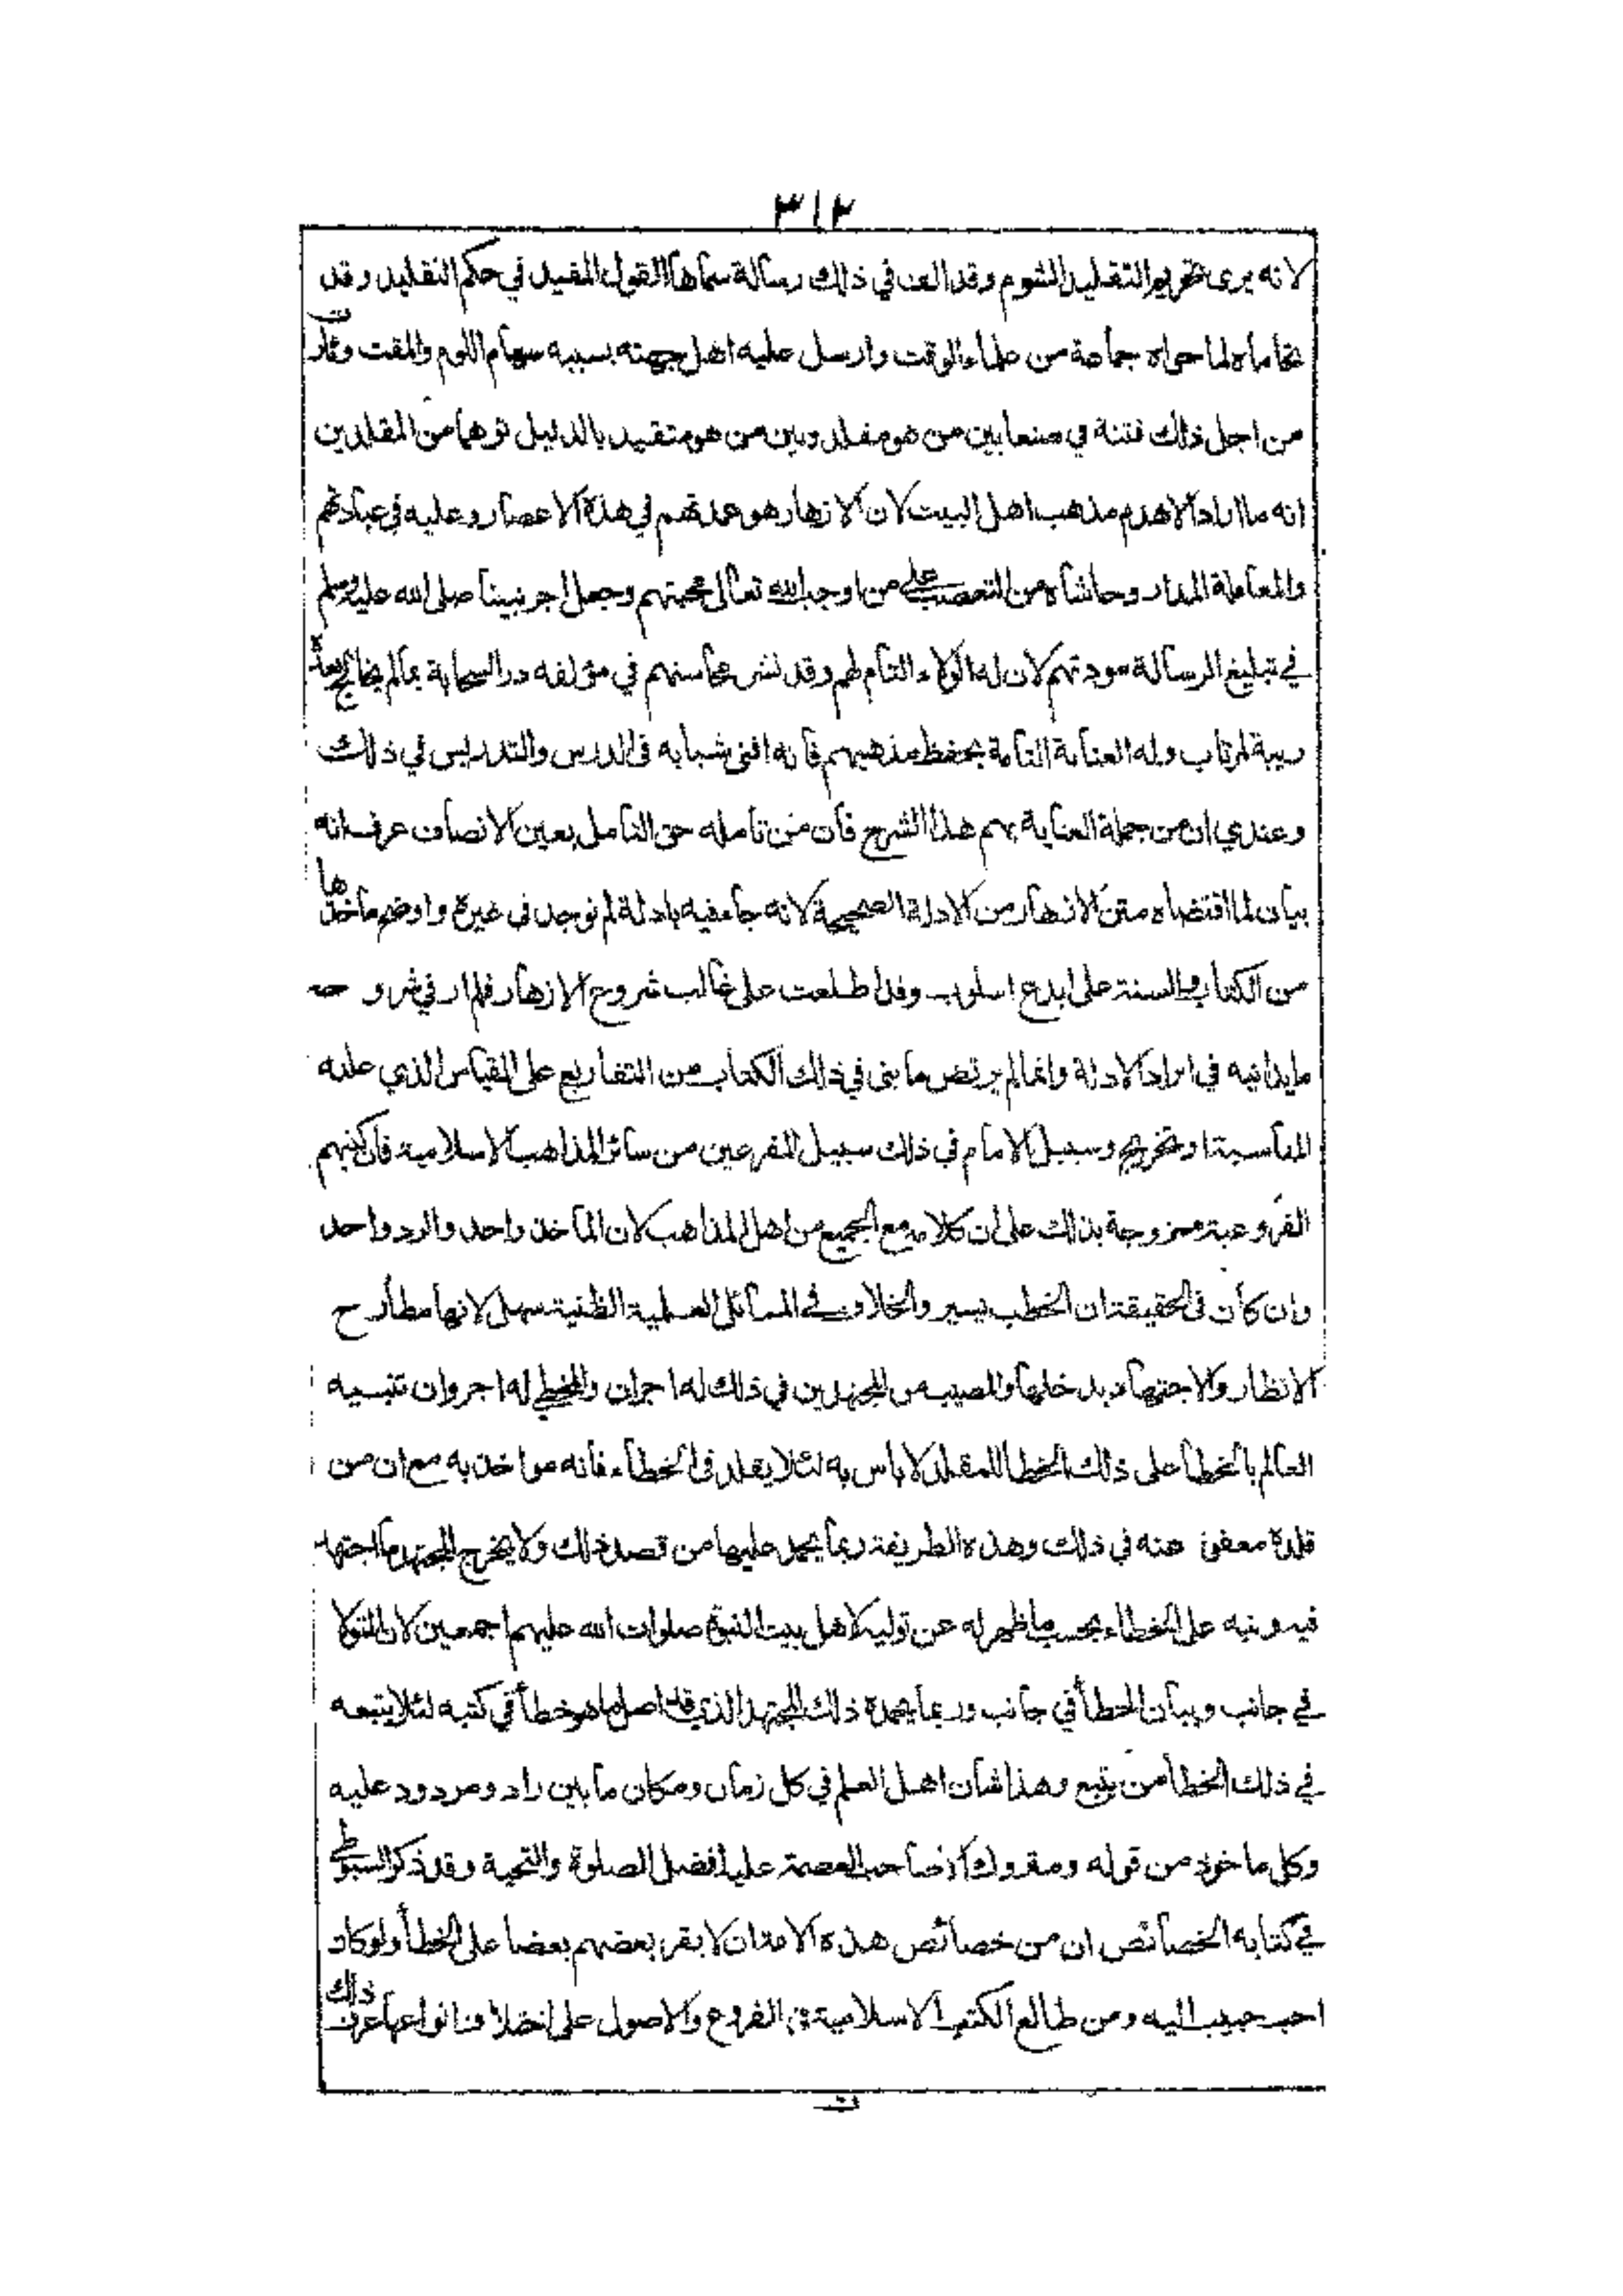 ٣١٢
لانه يرى تحريم التقليد المشوم وقد الف في ذلك رسالة سماها القول المفيد في حكم التقليد وقد
تحاماه لما حواه جماعة من علماء الوقت وارسل عليه اهل جهته بسببه سهام اللوم والمقت وثارت
من اجل ذلك فتنة في صنعا بين من هو مقلد وبين من هو متقيد بالدليل توهما من المقلدين
انه ما اراد الا هدم مذهب اهل البيت لان الازهار هو عمدتهم في هذه الاعصار وعليه في عبادتهم
والمعاملة المدار وحاشاه من التعصب على من اوجب الله تعالى محبتهم وجعل اجر نبينا صلى الله عليه وسلم
في تبليغ الرسالة مودتهم لان له الولاء التام لهم وقد نشر محاسنهم في مؤلفه در السحابة بما لم يخالج بعده
ريبة لمرتاب وله العناية التامة بحفظ مذهبهم فانه افنى شبابه في الدرس والتدريس في ذلك
وعندي ان من جملة العناية بهم هذا الشرح فان من تامله حق التامل بعين الانصاف عرف انه
بيان لما اقتضاه متن الازهار من الادلة الصحيحة لانه جا فيه بادلة لم توجد في غيره واوضح ماخذها
من الكتاب والسنة على ابدع اسلوب وقد اطلعت على غالب شروح الازهار فلم ار في شروحه
ما يدانيه في ايراد الادلة وانما لم يرتض ما بني في ذلك الكتاب من التفاريع على القياس الذي علته
المناسبة او تخريج وسبيل الامام في ذلك سبيل المفرعين من سائر المذاهب الاسلامية فان كتبهم
الفروعية ممزوجة بذلك على ان كلامه مع الجميع من اهل المذاهب لان الماخذ واحد والرد واحد
وان كان في الحقيقة ان الخطب يسير والخلاف في المسائل العملية الظنية سهل لانها مطارح
الانظار والاجتهاد يدخلها والمصيب من المجتهدين في ذلك له اجران والمخطي له اجر وان تنبيه
العالم بالخطأ على ذلك الخطا للمقلد لا باس به لئلا يقلد في الخطأ فانه مواخذ به مع ان من
قلده معفى عنه في ذلك وهذه الطريقة ربما يحمد عليها من قصد ذلك ولا يخرج المجتهد ما اجتهد
فيه ونبه على الخطاء بحسب ما ظهر له عن توليه لاهل بيت النبوة صلوات الله عليهم اجمعين لان التولا
في جانب وبيان الخطأ في جانب وربما يحمده ذلك المجتهد الذي قد اصل ما هو خطأ في كتبه لئلا يتبعه
في ذلك الخطأ من يتبع وهذا شأن اهل العلم في كل زمان ومكان ما بين راد ومردود عليه
وكل ماخوذ من قوله ومتروك الا صاحب العصمة عليه افضل الصلوة والتحية وقد ذكر السيوطي
في كتابه الخصائص ان من خصائص هذه الامة ان لا يقر بعضهم بعضا على الخطأ ولو كان
احب حبيب اليه ومن طالع الكتب الاسلامية في الفروع والاصول على اختلاف انواعها عرف ذلك